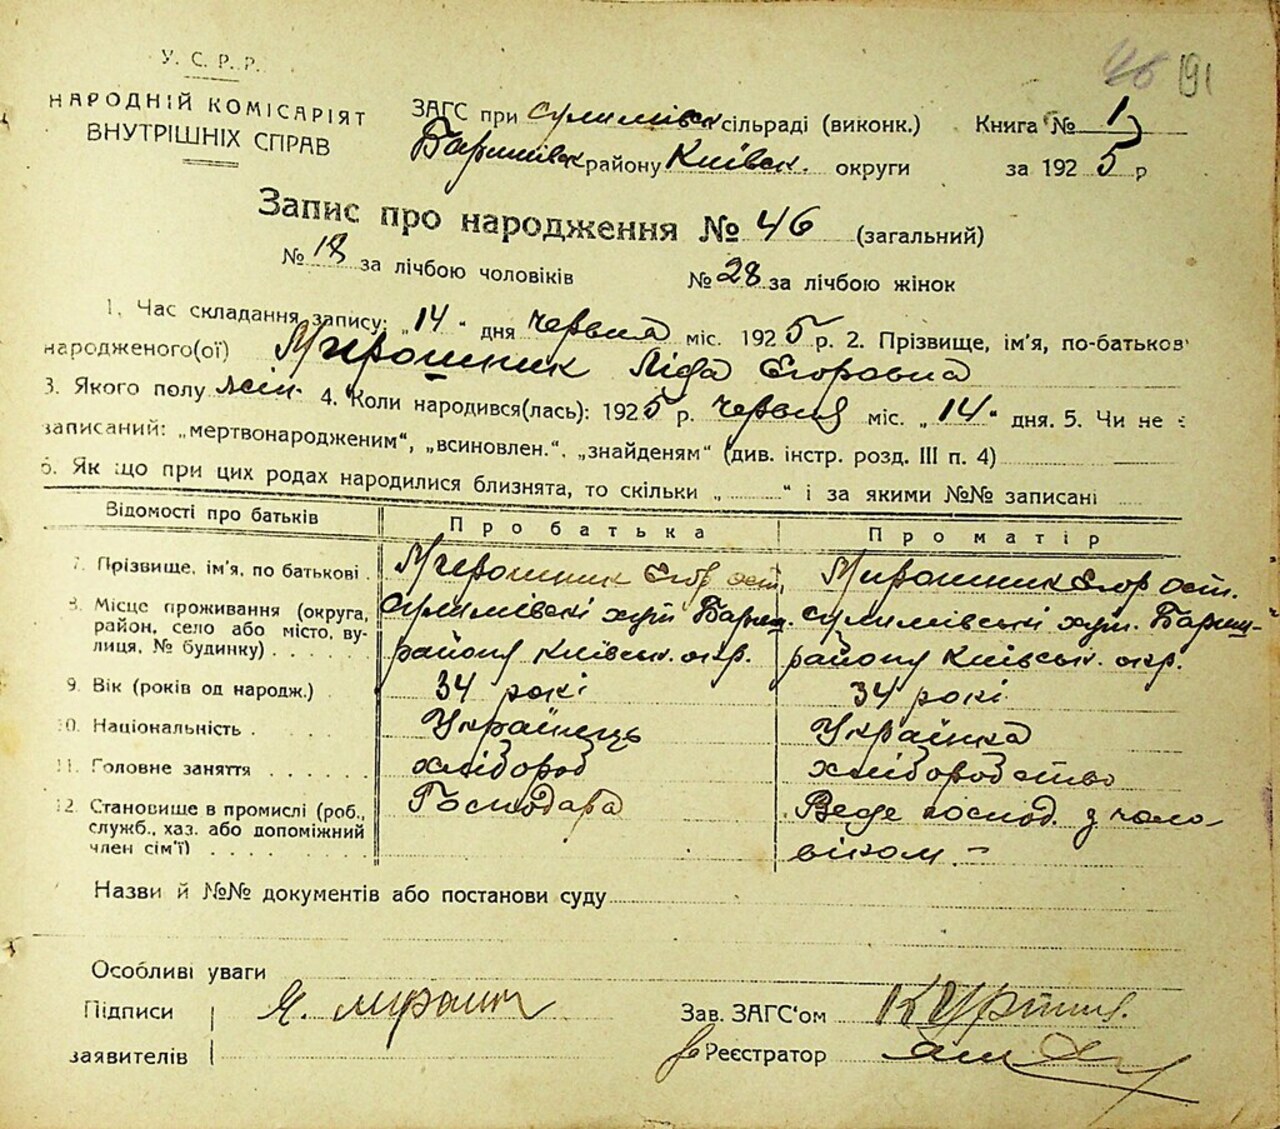 46 191
У. С. Р. Р.
НАРОДНІЙ КОМІСАРІЯТ
ВНУТРІШНІХ СПРАВ
ЗАГС при Сулимівск сільраді (виконк.) Книга № 1
Баришівск району Київск. округи за 1925 р
Запис про народження № 46 (загальний)
№ 18 за лічбою чоловіків № 28 за лічбою жінок
1. Час складання запису: „14“ дня червня міс. 1925 р. 2. Прізвище, ім'я, по-батьков
народженого(ої) Мирошник Ліда Егоровна
3. Якого полу жін. 4. Коли народився(лась): 1925 р. червня міс. „14“ дня. 5. Чи не є
записаний: „мертвонародженим“, „всиновлен.“. „знайденям“ (див. інстр. розд. III п. 4)
6. Як що при цих родах народилися близнята, то скільки „ “ і за якими №№ записані
Відомості про батьків Про батька Про матір
7. Прізвище, ім'я, по батькові . Мирошник Егор ост. Мирошник Егор ост.
8. Місце проживання (округа, район, село або місто, вулиця, № будинку) . . . . .
Сулимівскі хут Бариш. району Київськ. окр.
Сулимівські хут. Бариш- району Київськ. окр.
9. Вік (років од народж.) . 34 рокі 34 рокі
10. Національність . Українець Українка
11. Головне заняття . . . . . . хлібороб хлібородство
12. Становище в промислі (роб., служб., хаз. або допоміжний член сім'ї) . . . . . . .
Господара
Веде господ. з чоловіком. -
Назви й №№ документів або постанови суду
Особливі уваги
Підписи Зав. ЗАГС'ом
заявителів Реєстратор